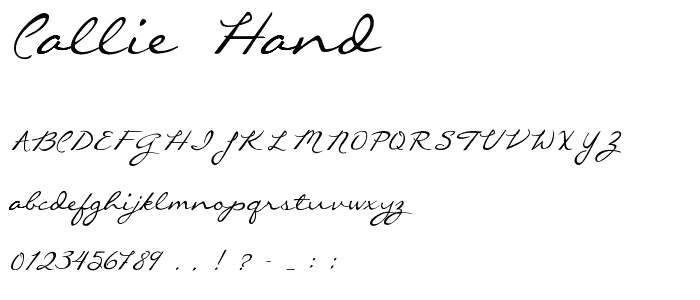 Callie Hand
ABCDEFGHIJKLMNOPQRSTUVWXYZ
abcdefghijklmnopqrstuvwxyz
0123456789 . , ! ? - _ : ;